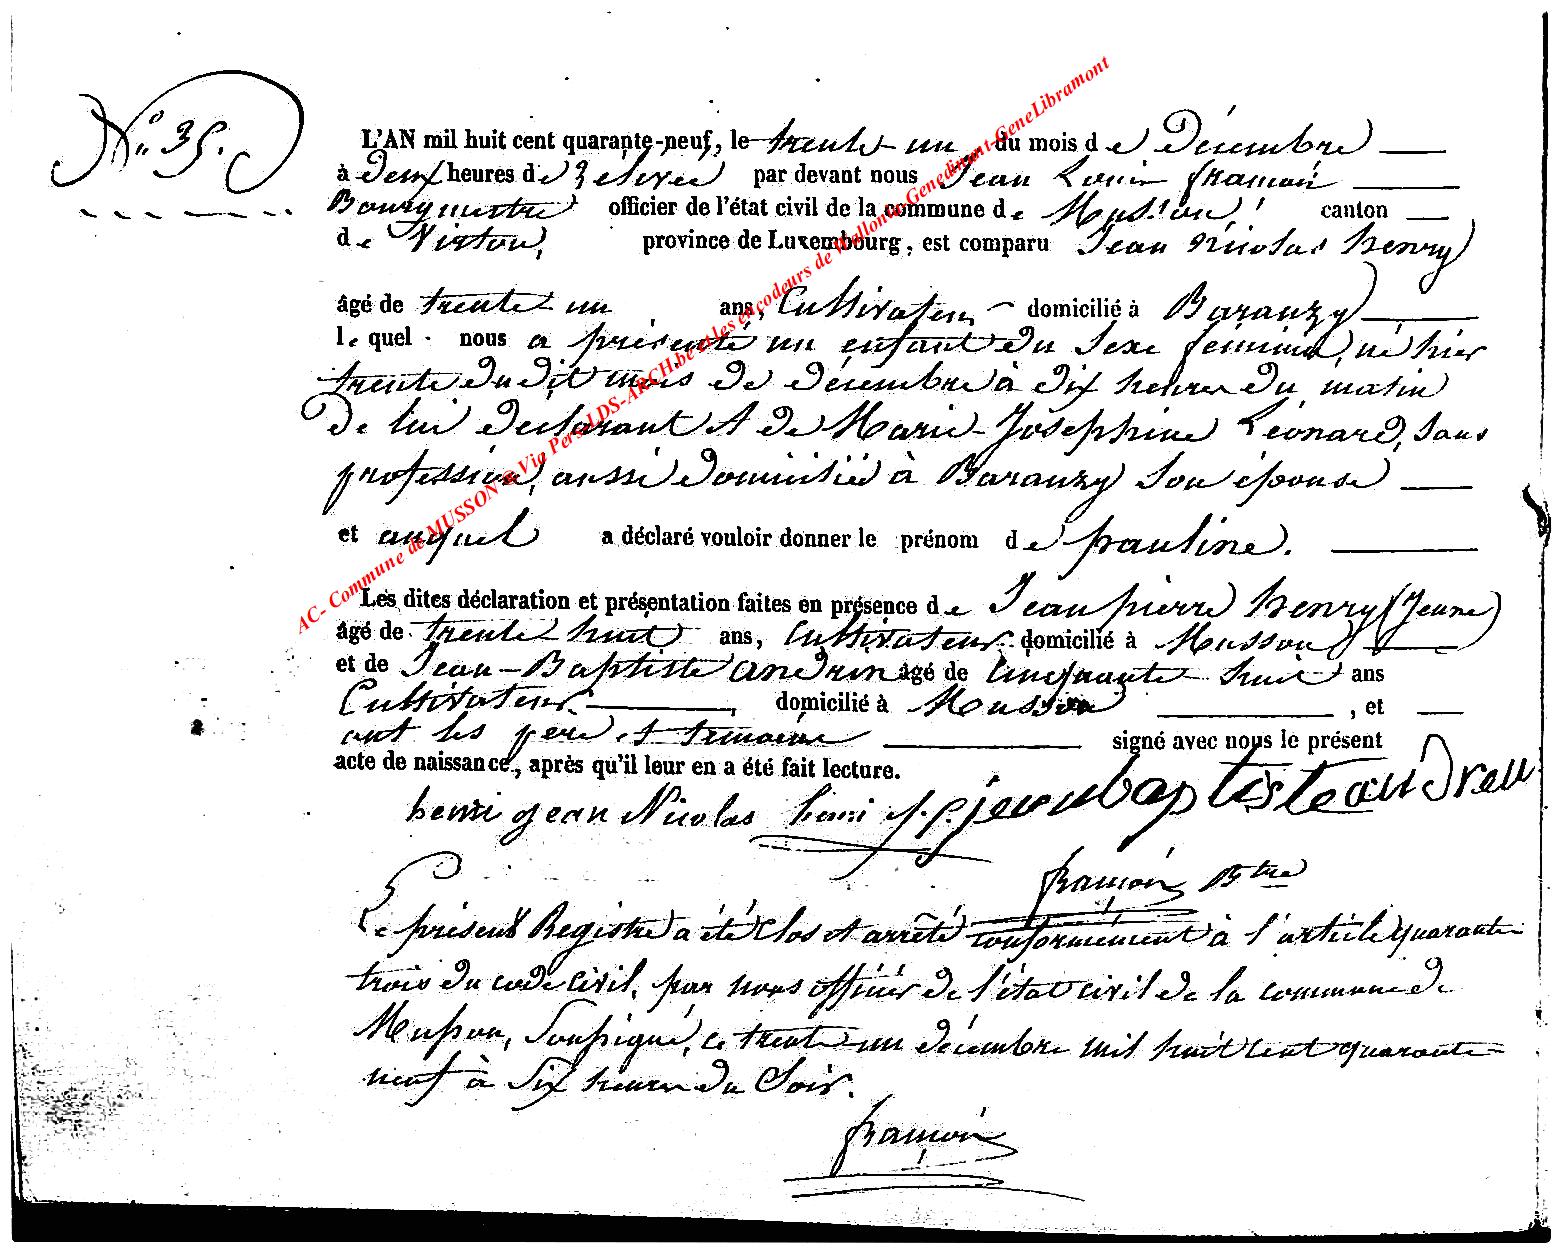 N.° 35.
L'AN mil huit cent quarante-neuf, le trente un du mois de décembre
à deux heures de relevée par devant nous Jean Louis françois
Bourgmestre officier de l'état civil de la commune de Musson, canton
de Virton, province de Luxembourg, est comparu Jean Nicolas henry
âgé de trente un ans, Cultivateur domicilié à Baranzy
lequel nous a présenté un enfant du sexe féminin, né hier
trente du dit mois de décembre à dix heures du matin
de lui déclarant et de Marie-Josephine Léonard, sans
profession, aussi domiciliée à Baranzy son épouse
et auquel a déclaré vouloir donner le prénom de pauline.
Les dites déclaration et présentation faites en présence de Jean pierre henry (Jeune)
âgé de trente huit ans, Cultivateur domicilié à Musson
et de Jean-Baptiste andreu âgé de cinquante huit ans
Cultivateur domicilié à Musson, et
ont les père et témoins signé avec nous le présent
acte de naissance, après qu'il leur en a été fait lecture.
henri jean Nicolas henri j. p. jean baptiste andreu
françois Btre
Le présent Registre a été clos et arrêté conformément à l'article quarante
trois du code civil, par nous officier de l'état civil de la commune de
Musson, soussigné, ce trente un décembre mil huit cent quarante
neuf à six heures du soir.
françois
AC- Commune de MUSSON @ Via Pers.LDS-ARCH.be et les encodeurs de Wallonie-Genedinant-GeneLibramont